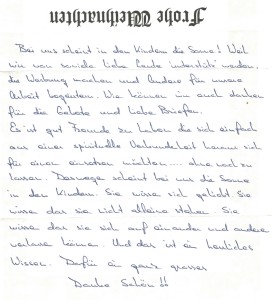 Frohe Weihnachten
Bei uns scheint in den Kindern die Sonne! Weil
wir von soviele liebe Leute unterstütz werden,
die Werbung machen und Andere für unsere
Arbeit begeistern. Wie können im auch danken
für die Gebete und liebe Briefen.
Es ist gut Freunde zu haben die sich einfach
aus einer spirituelle Verbundenheit heraus sich
für einen einsetzen möchten.... ohne viel zu
Deswege scheint bei uns die Sonne
in den Kinder. Sie wisse sich geliebt. Sie
wisse das sie nicht alleine stehen. Sie
wisse das sie sich auf einander und andere
verlasse können. Und das ist ein
Wissen. Dafür ein ganz grosses
Danke Schön!!